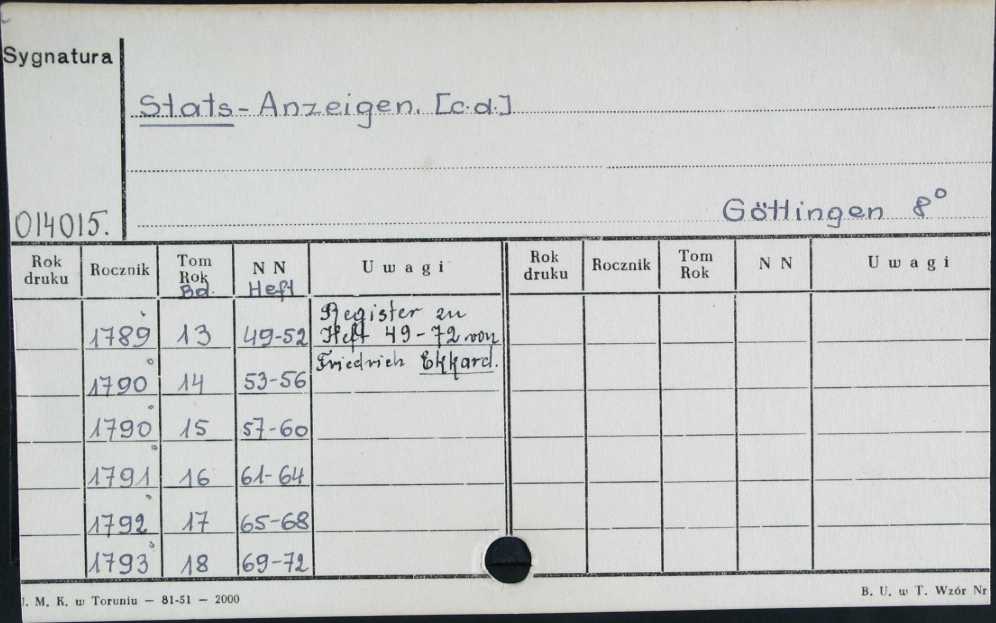 Sygnatura
Stats-Anzeigen. [c.d.]
014015.
Göttingen 8°
Rok druku Rocznik Tom Rok Bd. N N Heft Uwagi Rok druku Rocznik Tom Rok N N Uwagi
1789 13 49-52 Register zu Heft 49-72 von
1790 14 53-56 Friedrich Ekkard.
1790 15 57-60
1791 16 61-64
1792 17 65-68
1793 18 69-72
. M. K. w Toruniu — 81-51 — 2000
B. U. w T. Wzór Nr